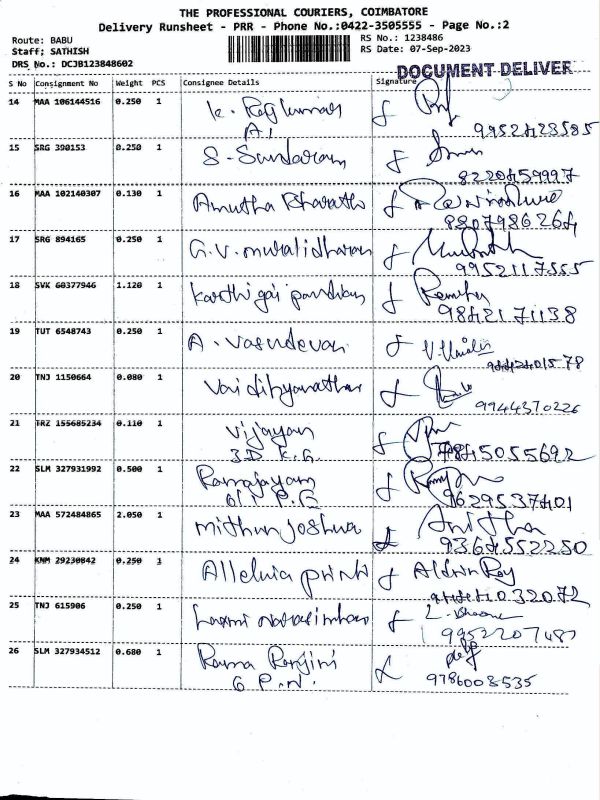 THE PROFESSIONAL COURIERS, COIMBATORE
Delivery Runsheet - PRR - Phone No.:0422-3505555 - Page No.:2
Route: BABU RS No.: 1238486
Staff: SATHISH RS Date: 07-Sep-2023
DRS No.: DCJB123848602
DOCUMENT DELIVER
S No Consignment No Weight PCS Consignee Details Signature
14 MAA 106144516 0.250 1 K. Rajkumar
A1 9952423585
15 SRG 390153 0.250 1 S. Sundaram
8220459997
16 MAA 102140307 0.130 1 Amutha Bharathi
8807986264
17 SRG 894165 0.250 1 G.V. Muralidharan
9952117555
18 SVK 60377946 1.120 1 Karthigai pandian
9842171138
19 TUT 6548743 0.250 1 A. Vasudevan
20 TNJ 1150664 0.080 1 Vaidihyanathan
9944370226
21 TRZ 155685234 0.110 1 Vijayan
3.D. K.G 9845055692
22 SLM 327931992 0.500 1 Ramajayam
P.G 9629537401
23 MAA 572484865 2.050 1 Mithun Joshua Anitha
9364552250
24 KNM 29230842 0.250 1 Alleluia prints Aldrin Roy
25 TNJ 615906 0.250 1 Laxmi Narasimhan
26 SLM 327934512 0.680 1 Rama Ranjini
G P.N. 9786008535